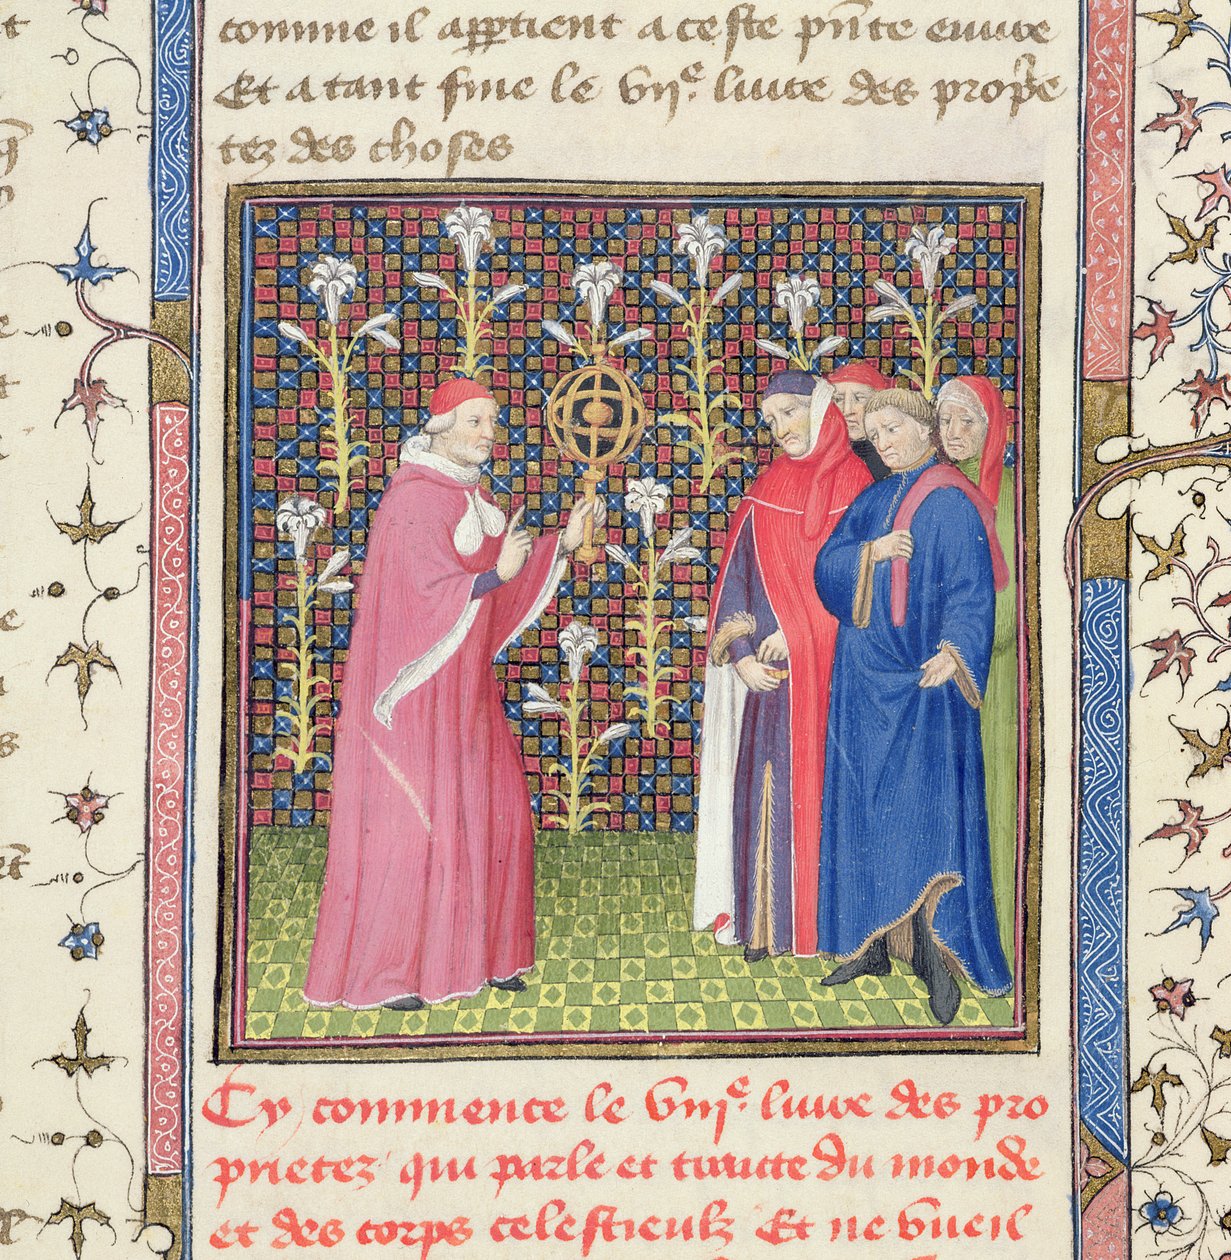 comme il app̲tient a ceste pñte euure
Et a tant fine le vijᵉ. liure des prop̲e
tez des choses
Cy commence le viijᵉ. liure des pro
prietez qui parle et traitte du monde
et des corps celestieulz Et ne vueil